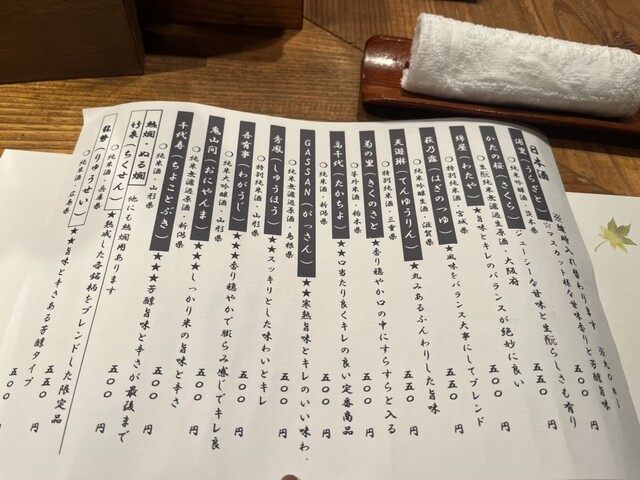 日本酒
※随時入れ替わります
渡里（うらざと）
○純米吟醸酒・茨木県
☆マスカット様な甘味香りと芳醇旨味
五五〇 円
かたの桜（さくら）
○生酛純米無濾過生原酒・大阪府
★ジューシーな甘味と生酛らしさも有り
五五〇 円
綿屋（わたや）
○特別純米酒・宮城県
★旨味とキレのバランスが絶妙に良い
五五〇 円
萩乃露（はぎのつゆ）
○純米吟醸酒・滋賀県
★風味をバランス大事にしてブレンド
五五〇 円
天遊琳（てんゆうりん）
○特別純米酒・三重県
★丸みあるふんわりした旨味
五五〇 円
菊の里（きくのさと）
○等外米酒・栃木県
★香り穏やか口の中にすらすらと入る
五〇〇 円
高千代（たかちよ）
○純米無濾過原酒・新潟県
★★口当たり良くキレの良い定番商品
五〇〇 円
GASSAN（がっさん）
○純米無濾過原酒・島根県
★★寒熟旨味とキレのいい味わ.
五〇〇 円
秀鳳（しゅうほう）
○特別純米酒・山形県
★★スッキリとした味わいとキレ
五〇〇 円
吾有事（わがうじ）
○純米大吟醸酒・山形県
★★香り穏やかで膨らみ感じてキレ良
五五〇 円
鬼山間（おにやんま）
○純米無濾過原酒・新潟県
★★しっかり米の旨味と辛さ
五〇〇 円
千代寿（ちよことぶき）
○純米酒・山形県
★★★芳醇旨味と辛さが最後まで
五〇〇 円
熱燗・ぬる燗
他にも熱燗用あります
竹泉（ちくせん）
○純米酒・兵庫県
★熟成した各銘柄をブレンドした限定品
五〇〇 円
龍勢（りゅうせい）
○純米酒・広島県
★旨味と辛さある芳醇タイプ
五〇〇 円